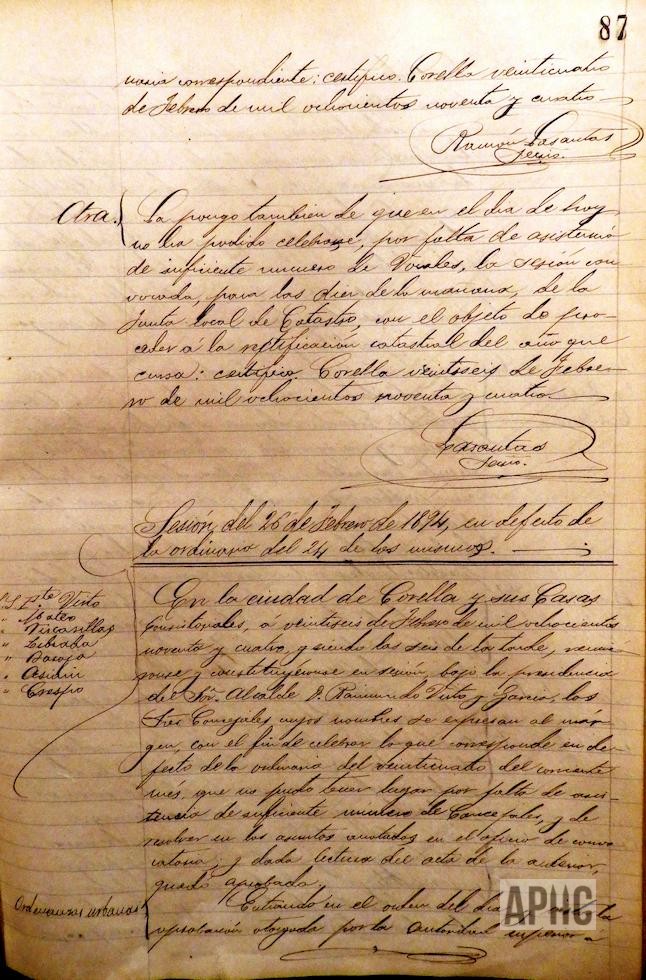 87
naria correspondiente: certifico. Corella veinticuatro
de Febrero de mil ochocientos noventa y cuatro
Ramón Lasantas
Secrio.
Otra.
La pongo tambien de que en el dia de hoy
no ha podido celebrarse, por falta de asistencia
de suficiente numero de Vocales, la sesión con
vocada, para las diez de la mañana, de la
Junta local de Catastro, con el objeto de pro-
ceder á la rectificación catastral del año que
cursa: certifico. Corella veintiseis de Febre-
ro de mil ochocientos noventa y cuatro.
Lasantas
Secrio.
Sesión del 26 de Febrero de 1894, en defecto de
la ordinaria del 24 de los mismos.
Pste Virto
" Mateo
"
"
"
"
" Crespo
En la ciudad de Corella y sus Casas
Consistoriales, á veintiseis de Febrero de mil ochocientos
noventa y cuatro, y siendo las seis de la tarde, reunie
ronse y constituyéronse en sesión, bajo la presidencia
del Sr. Alcalde D. Raimundo Virto y Garcia, los
Sres Concejales cuyos nombres se expresan al már-
gen, con el fin de celebrar la que corresponde en de-
fecto de la ordinaria del veinticuatro del corriente
mes, que no pudo tener lugar por falta de asis-
tencia de suficiente numero de Concejales, y de
resolver en los asuntos anotados en el oficio de convo
catoria; y dada lectura del acta de la anterior,
quedó aprobada.
Ordenanzas urbanas
Entrando en el orden del dia y la
aprobación otorgada por la autoridad superior á
APHC